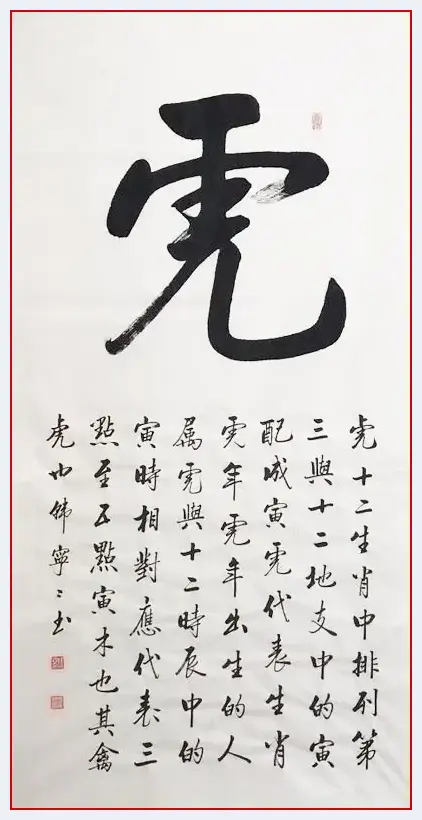 虎
虎十二生肖中排列第
三與十二地支中的寅
配成寅虎代表生肖
虎年虎年出生的人
属虎與十二時辰中的
寅時相對應代表三
點至五點寅木也其禽
虎也韩寧寧书